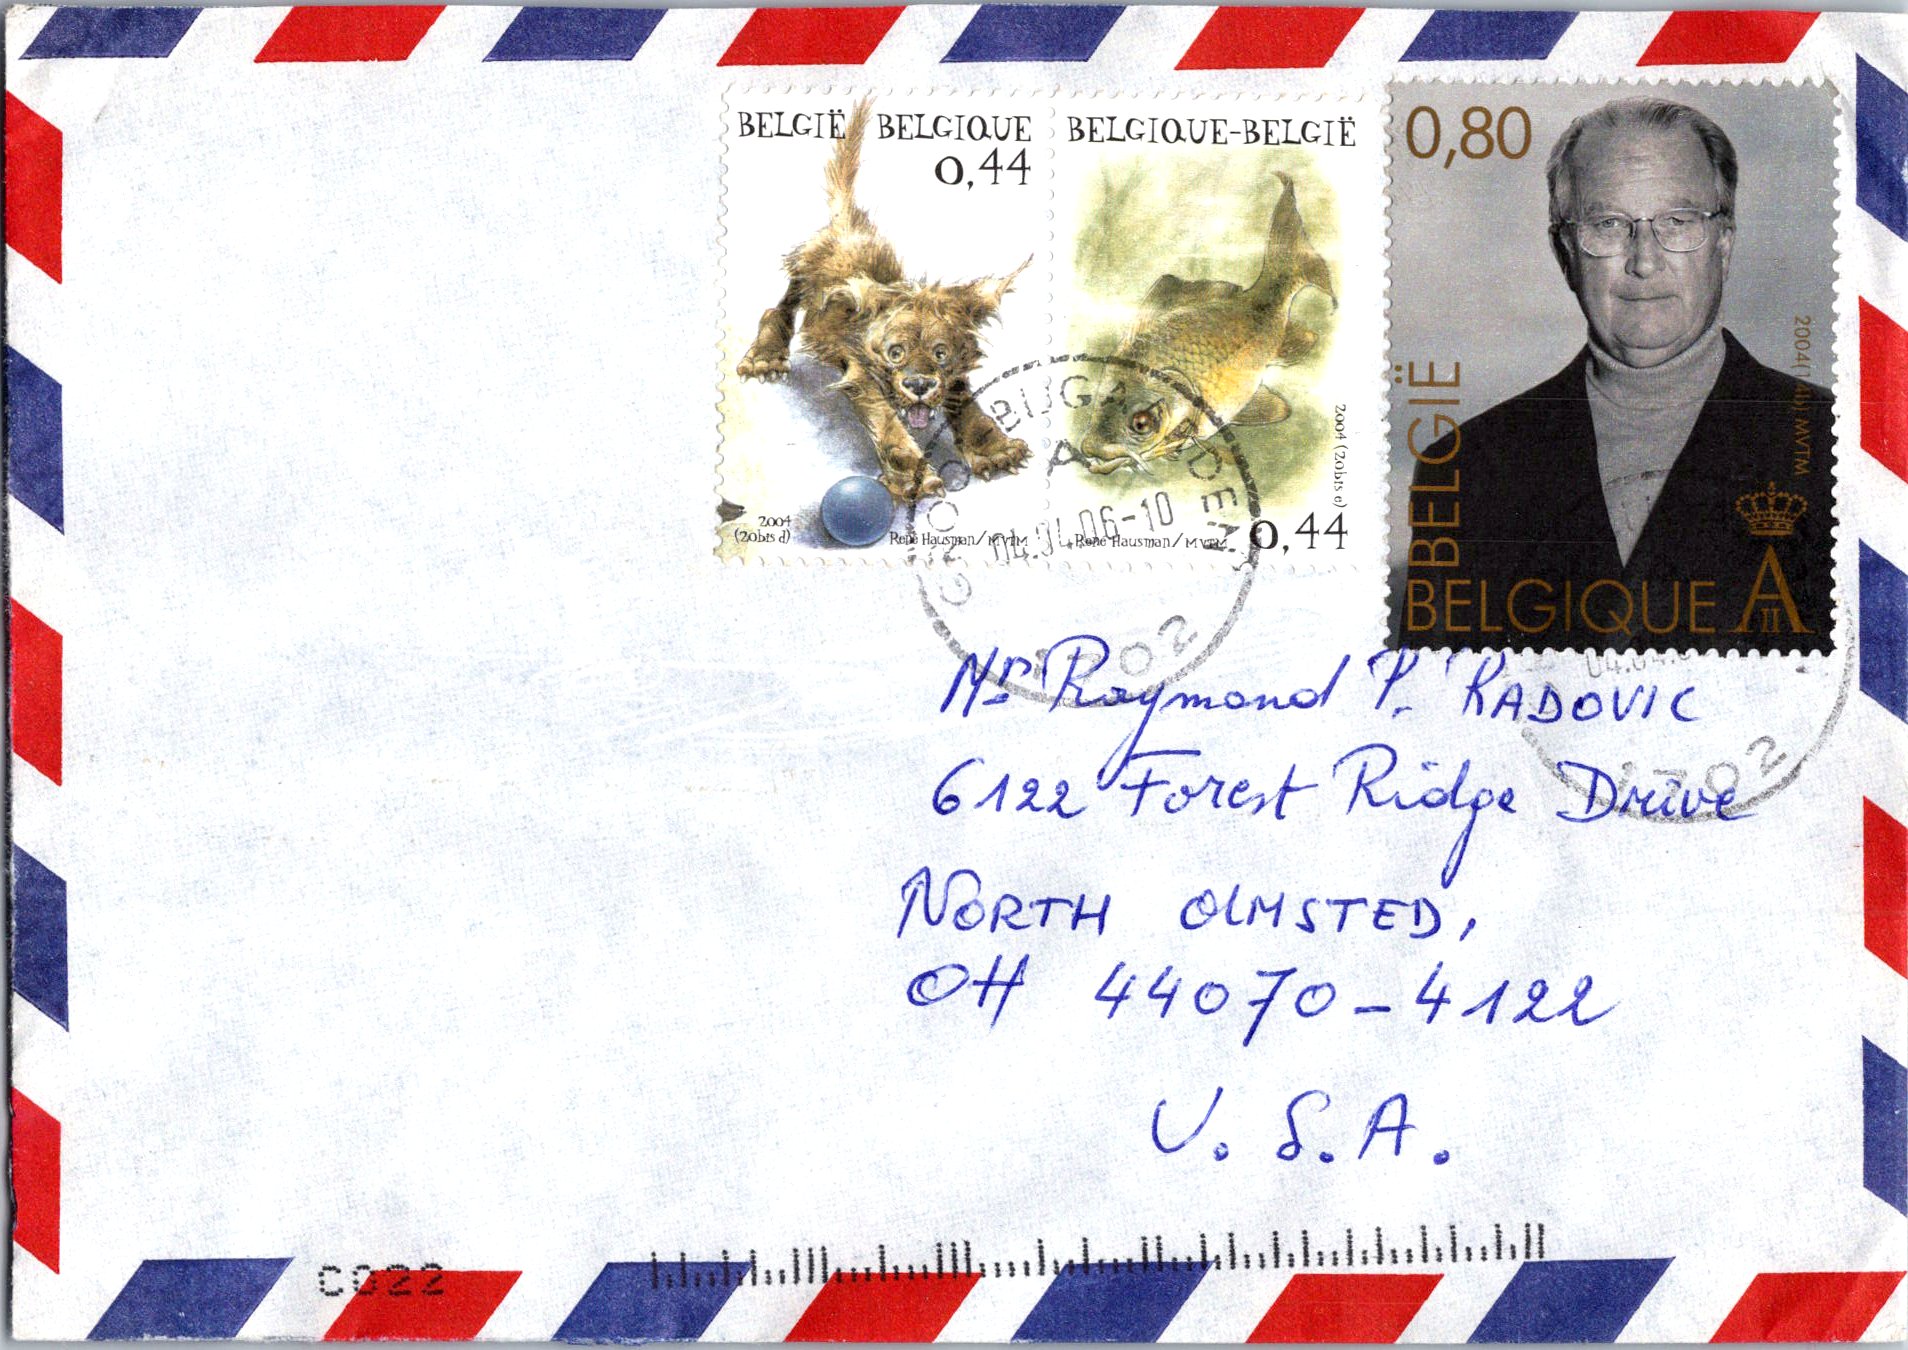 BELGIË BELGIQUE
0,44
2004
(20bis d)
René Hausman/MVTM
BELGIQUE-BELGIË
2004 (20bis e)
René Hausman/MVTM
0,44
0,80
BELGIË
BELGIQUE
2004(14b) MVTM
A
II
A
04.04.06-10
1702
04.04.0
1702
Mr Raymond P. RADOVIC
6122 Forest Ridge Drive
NORTH OLMSTED,
OH 44070-4122
U.S.A.
C022